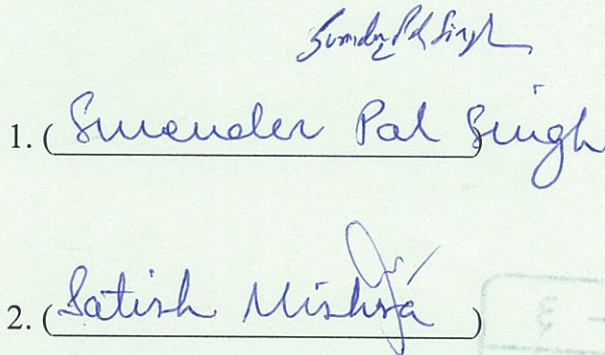 Surender Pal Singh
1. (Surender Pal Singh
2. (Satish Mishra)